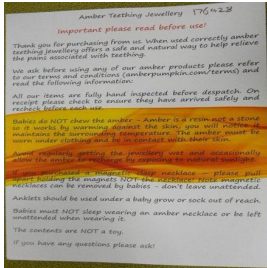 Amber Teething Jewellery 176428
Important please read before use!
Thank you for purchasing from us. When used correctly amber
teething jewellery offers a safe and natural way to help relieve
the pains associated with teething.
We ask before using any of our amber products please refer
to our terms and conditions (amberpumpkin.com/terms) and
read the following information:
All our items are fully hand inspected before despatch. On
receipt please check to ensure they have arrived safely and
recheck before each use.
Babies do NOT chew the amber - Amber is a resin not a stone
so it works by warming against the skin, you will notice it
maintains the surrounding temperature. The amber must be
worn under clothing and be in contact with their skin.
Avoid regularly getting the jewellery wet and occasionally
allow the amber to recharge by exposing to natural sunlight.
If you purchased a magnetic clasp necklace - please pull
apart holding the magnets NOT the necklace! Note magnetic
necklaces can be removed by babies - don't leave unattended.
Anklets should be used under a baby grow or sock out of reach.
Babies must NOT sleep wearing an amber necklace or be left
unattended when wearing it.
The contents are NOT a toy.
If you have any questions please ask!